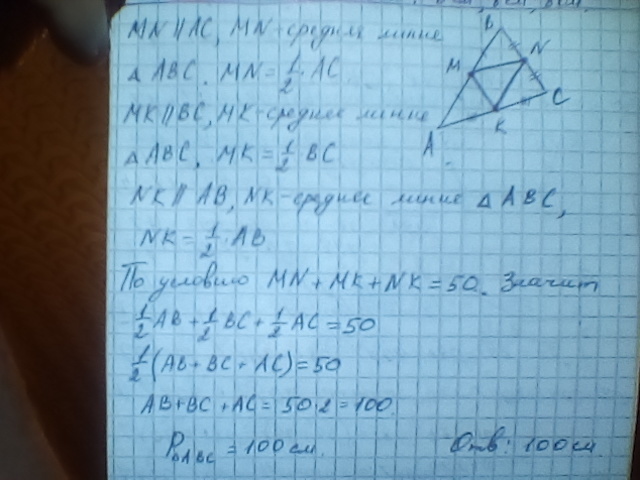 MN || AC, MN - средняя линия
△ ABC. MN = 1/2 · AC.
MK || BC, MK - средняя линия
△ ABC, MK = 1/2 · BC
NK || AB, NK - средняя линия △ ABC,
NK = 1/2 · AB
По условию MN + MK + NK = 50. Значит
1/2 AB + 1/2 BC + 1/2 AC = 50
1/2 (AB + BC + AC) = 50
AB + BC + AC = 50·2 = 100.
P△ABC = 100 см.
Отв: 100 см.
B
N
M
C
K
A